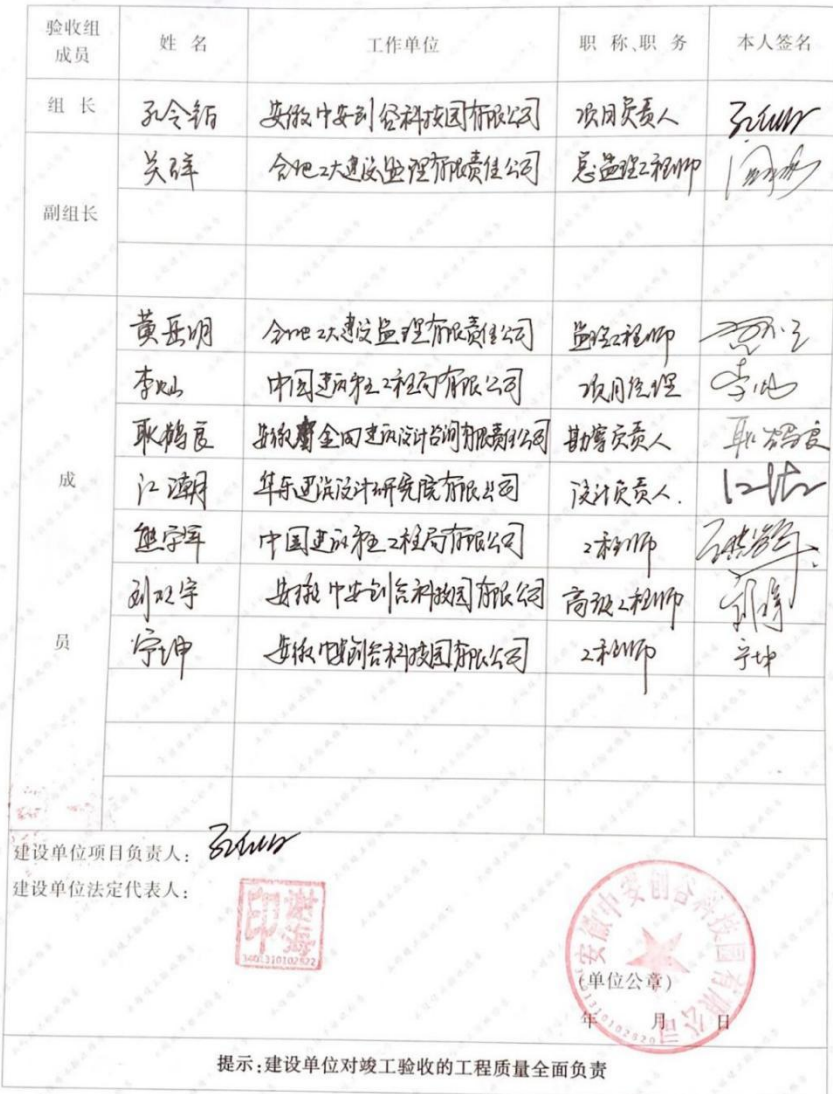 验收组成员 姓 名 工作单位 职 称、职 务 本人签名
组 长 孔令铂 安徽中安创谷科技园有限公司 项目负责人
副组长 吴祥 合肥工大建设监理有限责任公司 总监理工程师
成 员
黄岳明 合肥工大建设监理有限责任公司 监理工程师
李灿 中国建筑第五工程局有限公司 项目经理 李灿
耿鹤良 安徽金田建筑设计咨询有限责任公司 勘察负责人 耿鹤良
江潮 华东建筑设计研究院有限公司 设计负责人.
熊学军 中国建筑第五工程局有限公司 工程师
刘双宇 安徽中安创谷科技园有限公司 高级工程师
宁坤 安徽中安创谷科技园有限公司 工程师 宁坤
建设单位项目负责人:
建设单位法定代表人:
谢海印
安徽中安创谷科技园有限公司
(单位公章)
年 月 日
提示:建设单位对竣工验收的工程质量全面负责